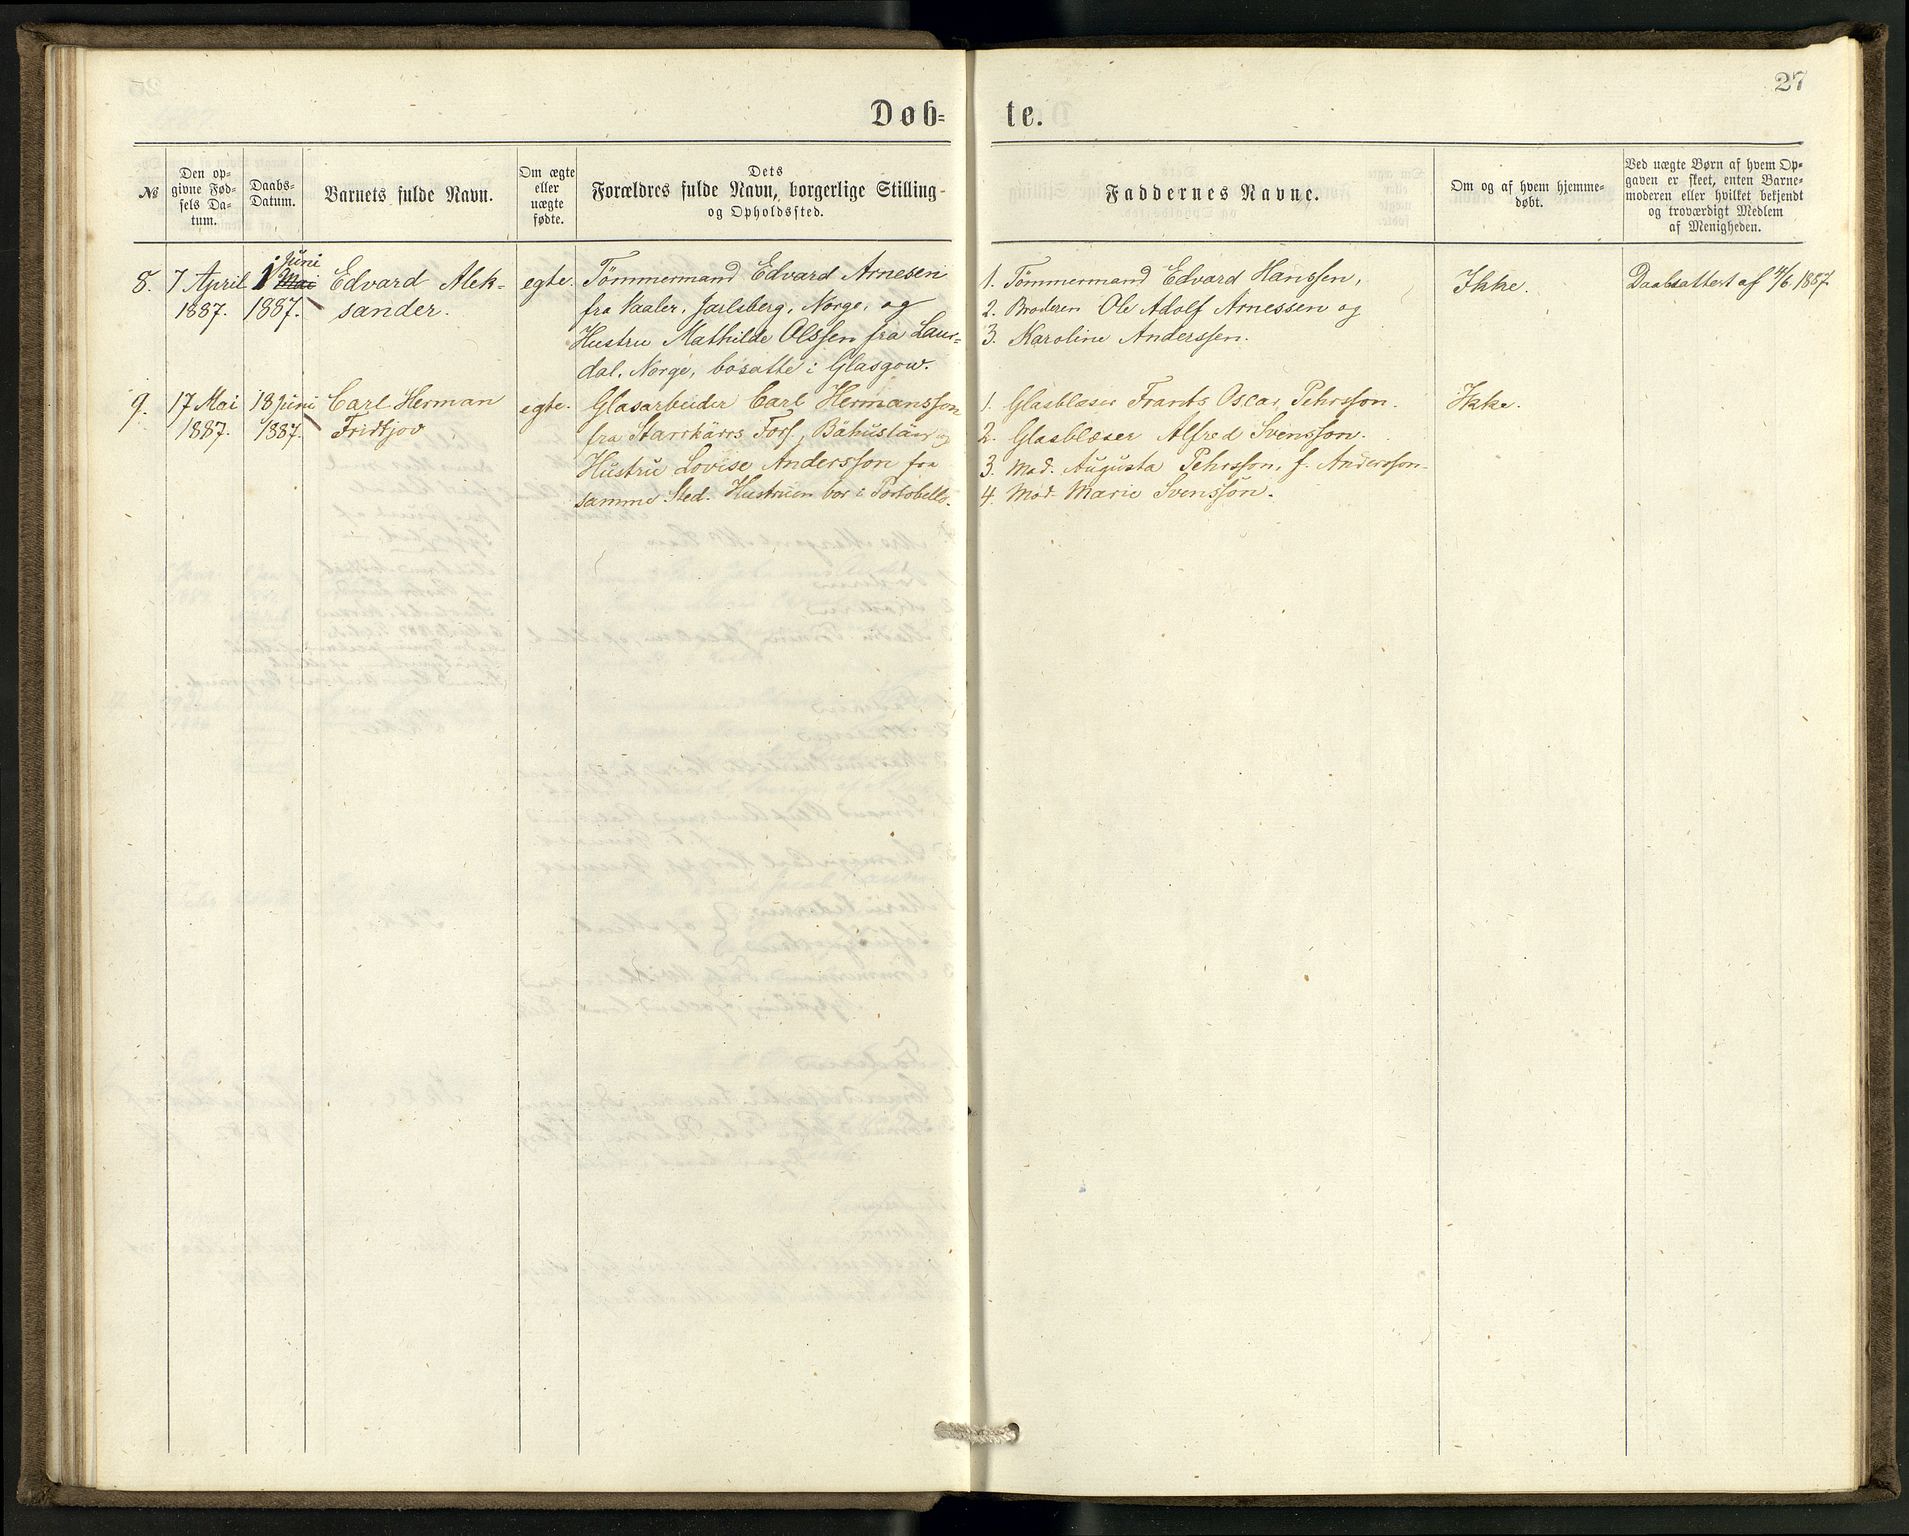 27
Døb= te.
№
Den op=
givne Fød=
sels Da=
tum.
Daabs=
Datum.
Barnets fulde Navn.
Om ægte
eller
uægte
fødte.
Dets
Forældres fulde Navn, borgerlige Stilling
og Opholdssted.
Faddernes Navne.
Om og af hvem hjemme=
døbt.
Ved uægte Børn af hvem Op=
gaven er skeet, enten Barne=
moderen eller hvilket bekjendt
og troværdigt Medlem
af Menigheden.
8.
7 April
1887.
Juni
1 Mai
1887.
Edvard Alek-
sander.
egte.
Tømmermand Edvard Arnesen
fra Vaaler, Jarlsberg, Norge, og
Hustru Mathilde Olssen fra Laur-
dal, Norge, bosatte i Glasgow.
1. Tømmermand Edvard Hanssen,
2. Broderen Ole Adolf Arnessen og
3. Karoline Anderssen.
Ikke.
Daabsattest af 4/6 1887.
9.
17 Mai
1887.
18 Juni
1887.
Carl Herman
Fridtjov
egte.
Glasarbeider Carl Hermansson
fra Starrkärrs Fors, Bähuslän og
Hustru Lovise Andersson fra
samme Sted. Hustruen bor i Portobello.
1. Glasblæser Frants Oscar Pehrsson.
2. Glasblæser Alfred Svensson.
3. Mad. Augusta Pehrsson, f. Andersson
4. Mad. Marie Svensson.
Ikke.